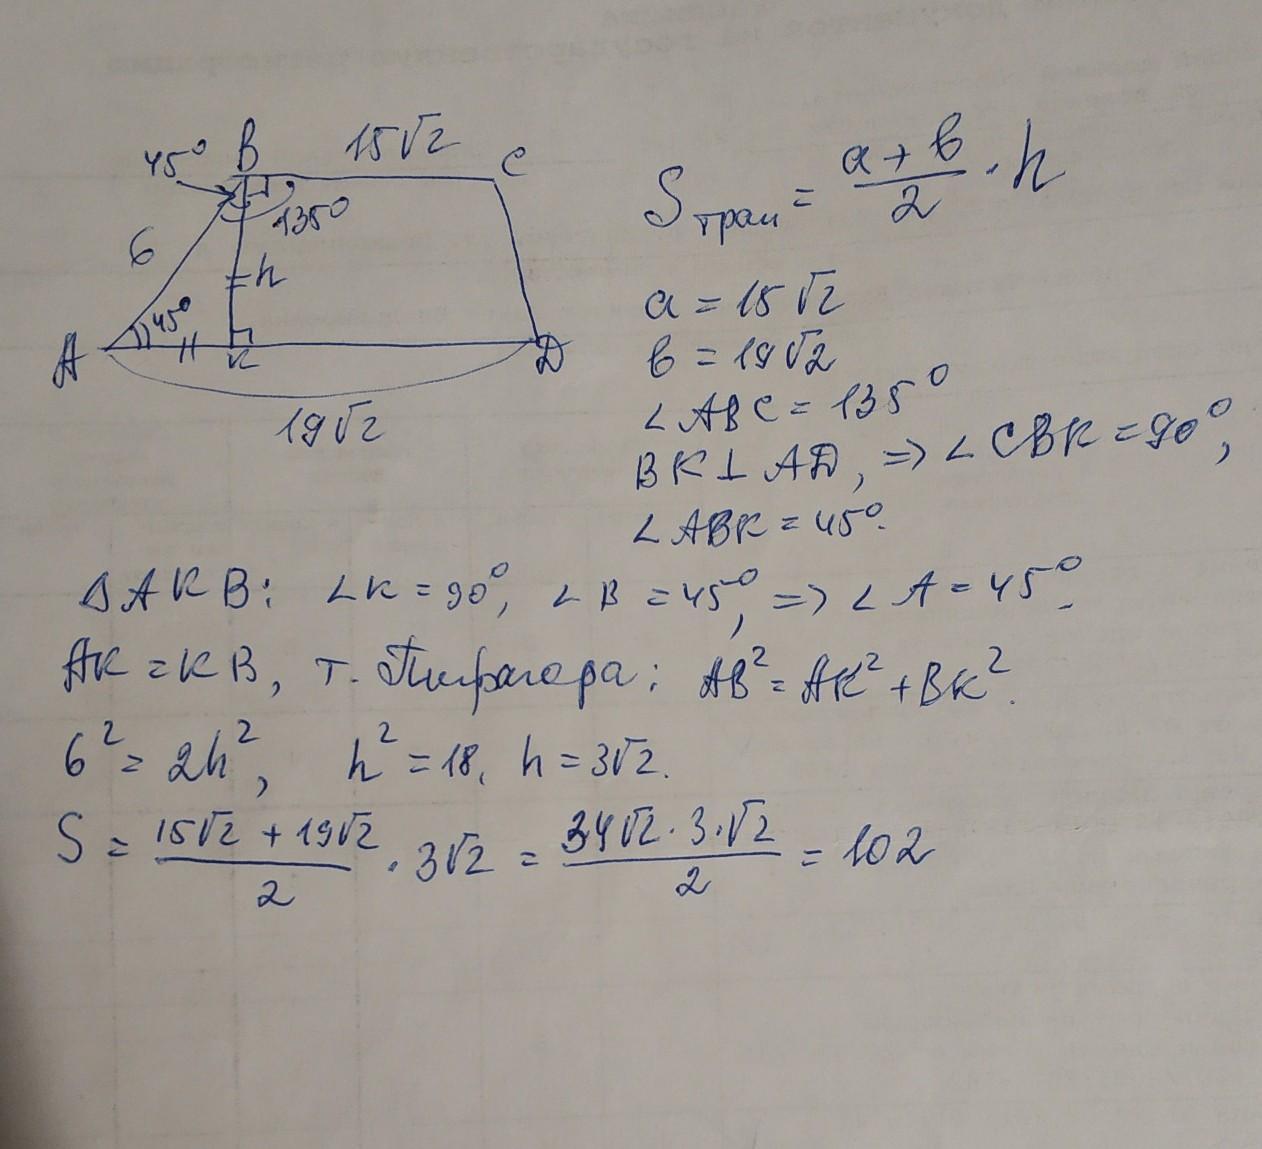 45° B 15√2 C
6 135°
h
45°
A K D
19√2
S трап = (a + b)/2 · h
a = 15√2
b = 19√2
∠ABC = 135°
BK ⊥ AD, => ∠CBK = 90°,
∠ABK = 45°.
ΔAKB: ∠K = 90°, ∠B = 45°, => ∠A = 45°.
AK = KB, т. Пифагора: AB² = AK² + BK².
6² = 2h², h² = 18, h = 3√2.
S = (15√2 + 19√2)/2 · 3√2 = (34√2 · 3 · √2)/2 = 102